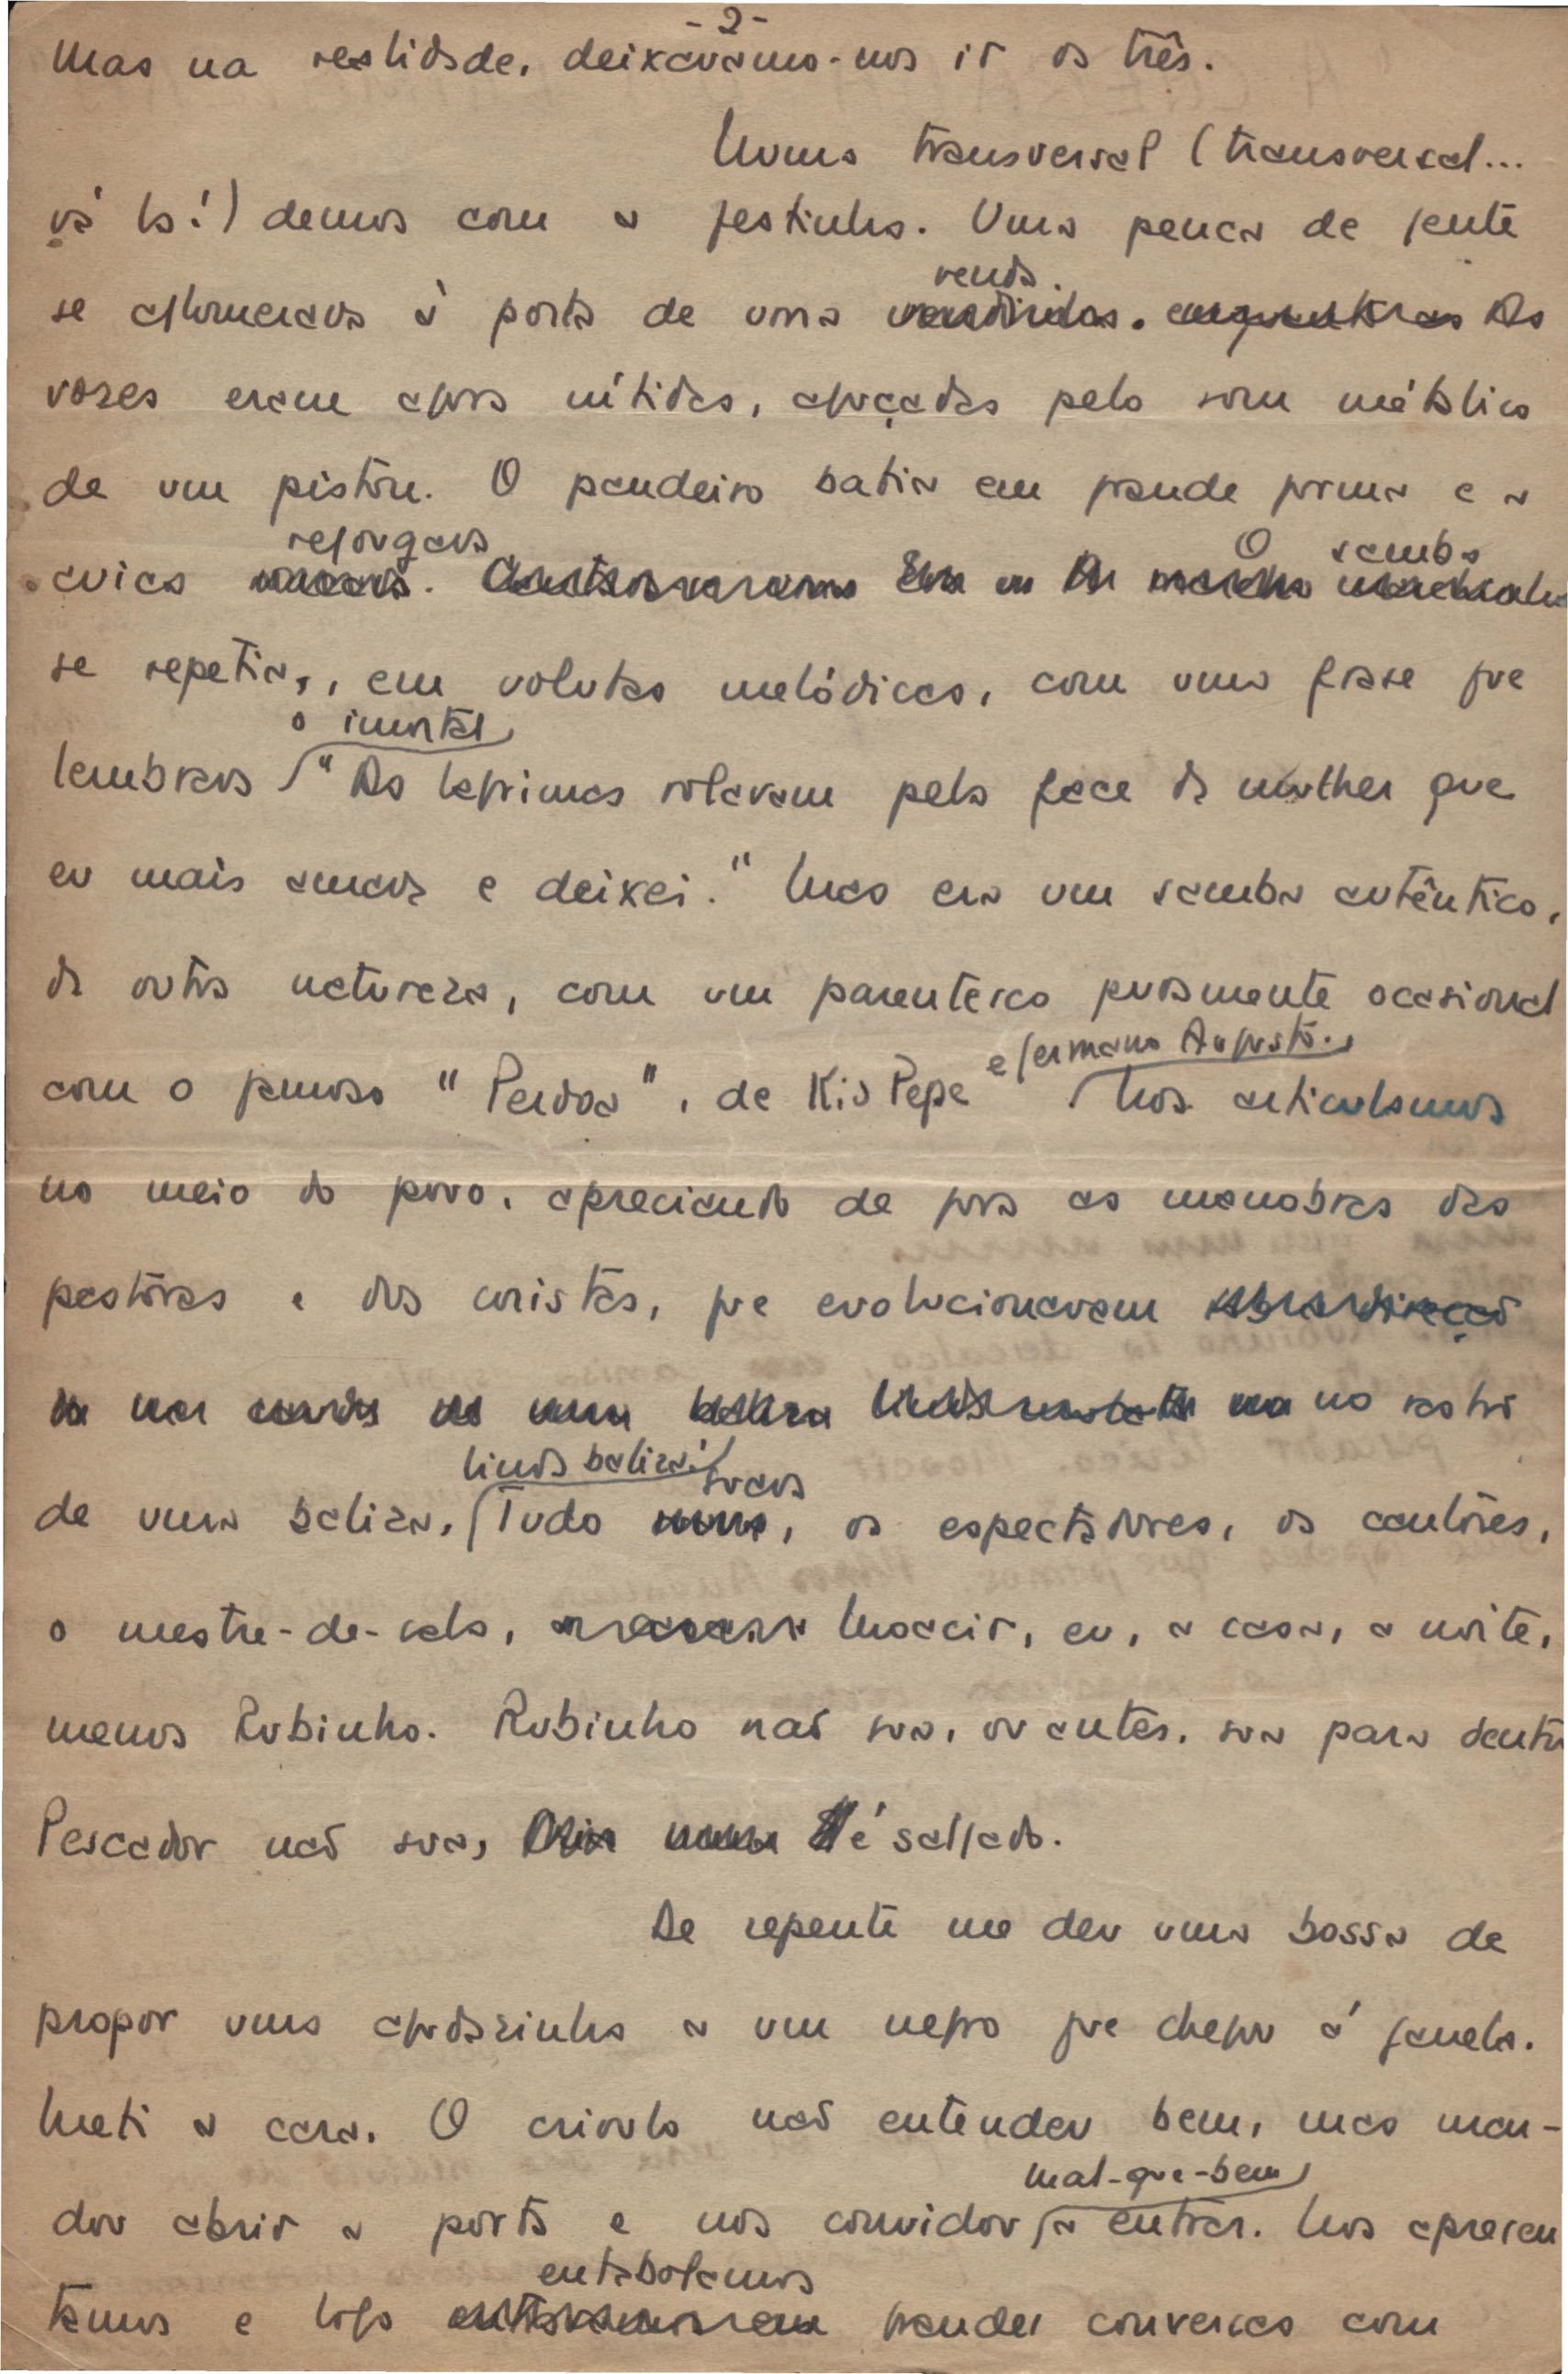 - 2 -
Mas na realidade, deixavamo-nos ir os três.
Numa transversal (transversal...
vá lá!) demos com a festinha. Uma penca de gente
venda.
se aglomerava à porta de uma vendinha. As
vozes eram agora nítidas, aguçadas pelo som metálico
de um pistón. O pandeiro batia em grande forma e a
refungava O samba
cuica
se repetia,, em volutas melódicas, com uma frase que
o imortal
lembrava "As lagrimas rolavam pela face da mulher que
eu mais amava e deixei." Mas era um samba autêntico,
da outra natureza, com um parentesco puramente ocasional
e Germano Augusto.
com o famoso "Perdoa", de Kid Pepe Nos articulamos
no meio do povo, apreciando de fora as manobras das
pastôras e dos coristas, que evolucionavam
no rastro
linda baliza! suava
de uma baliza. Tudo , os espectadores, os cantores,
o mestre-de-sala, Moacir, eu, a casa, a noite,
menos Rubinho. Rubinho não sua, ou antes, sua para dentro
Pescador não sua, é salgado.
De repente me deu uma bossa de
propor uma aguazinha a um negro que chegou á janela.
Meti a cara. O crioulo não entendeu bem, mas man-
mal-que-bem
dou abrir a porta e nos convidou a entrar. Nos apresen
entabolamos
tamos e logo grandes conversas com